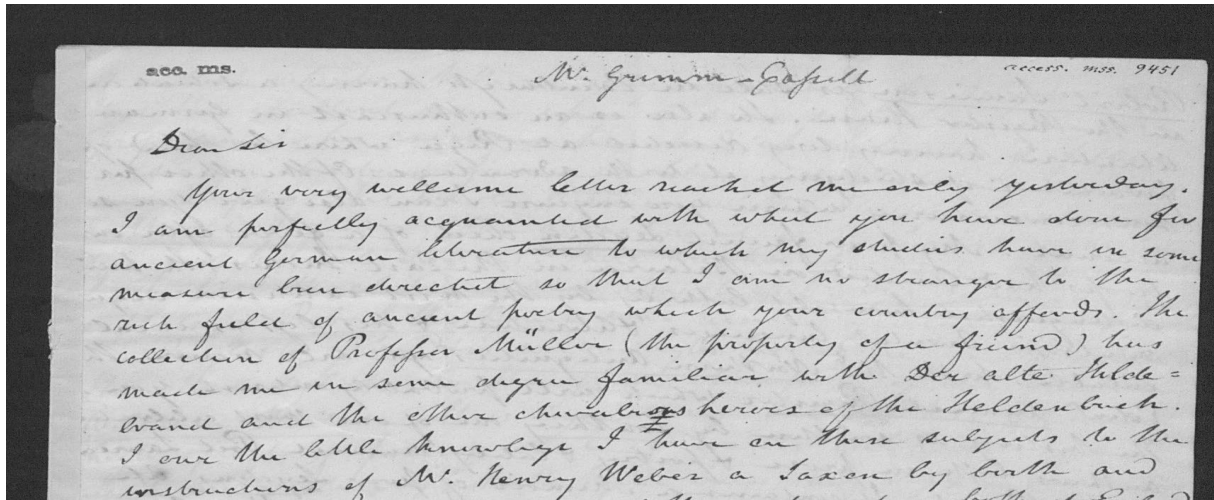 acc. ms.
Mr. Grimm - Cassell
access. mss. 9451
Dear Sir
Your very wellcome letter reached me only yesterday.
I am perfectly acquainted with what you have done for
ancient German literature to which my studies have in some
measure been directed so that I am no stranger to the
rich field of ancient poetry which your country affords. The
collection of Professor Müller (the property of a friend) has
made me in some degree familiar with Der alte Hilde=
brand and the other chivalrous heroes of the Heldenbuch.
I owe the little knowlege I have on these subjects to the
instructions of Mr. Henry Weber a Saxon by birth and